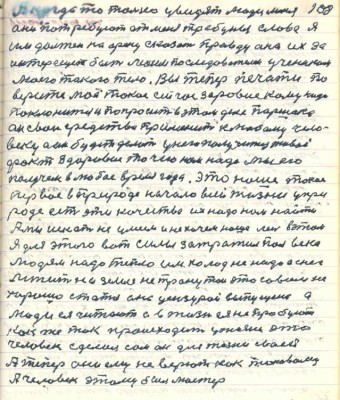 А когда то только увидят люди меня 158
они потребуют от меня трибуны слова я
им должен на арену сказать правду она их за
интересует быть моим последователем учеником
моего такого тела. Вы теперь печати по
верите мое такое сейчас здоровие кому надо
поклонитися попросить в этом деле Паршека
он свои средства применит к любому чело
веку а он будет делать у него получится живой
факт Здоровие то что нам надо мы его
получим в любое время года. Это наше такое
первое в природе начало всей жизни у при
роде есть эти качества их надо нам найти
А мы искать не умеем и не хочем наша лень в этом
Я для этого вот силы затратил пол века
Людям надо тепло им холод не надо а снег
лежит на земле не тронутый это совсем не
хорошо статья она цензурой выпущена а
люди ея читают а в жизнь ея не пробуют
Как же так происходит у нас на это
человек сделал сам он для жизни своей
А теперь они ему не верют как таковому
А человек этому был мастер